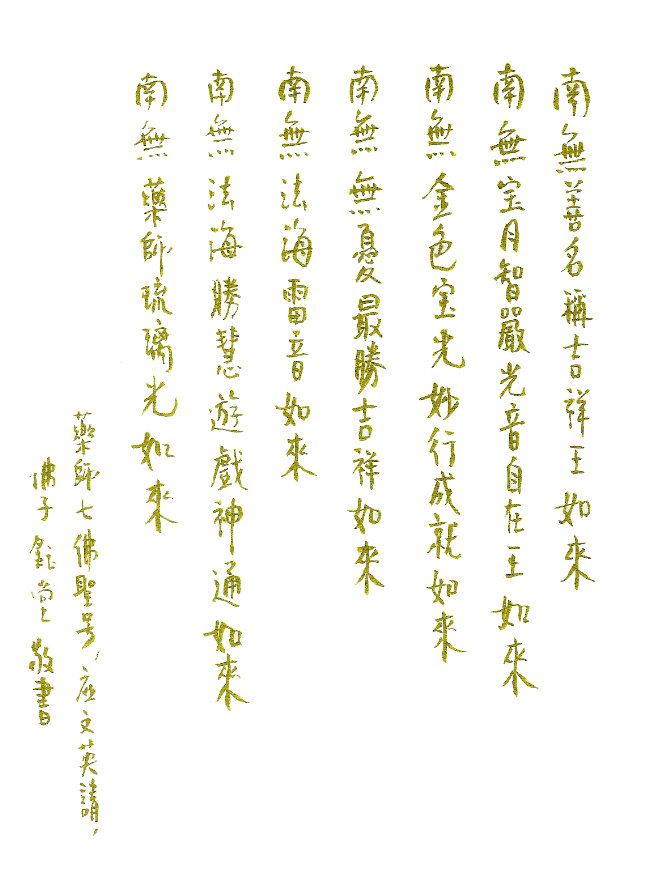 南無善名稱吉祥王如來
南無宝月智嚴光音自在王如來
南無金色宝光妙行成就如來
南無無憂最勝吉祥如來
南無法海雷音如來
南無法海勝慧遊戲神通如來
南無藥師琉璃光如來
藥師七佛聖号，应文英請，
佛子 敬書